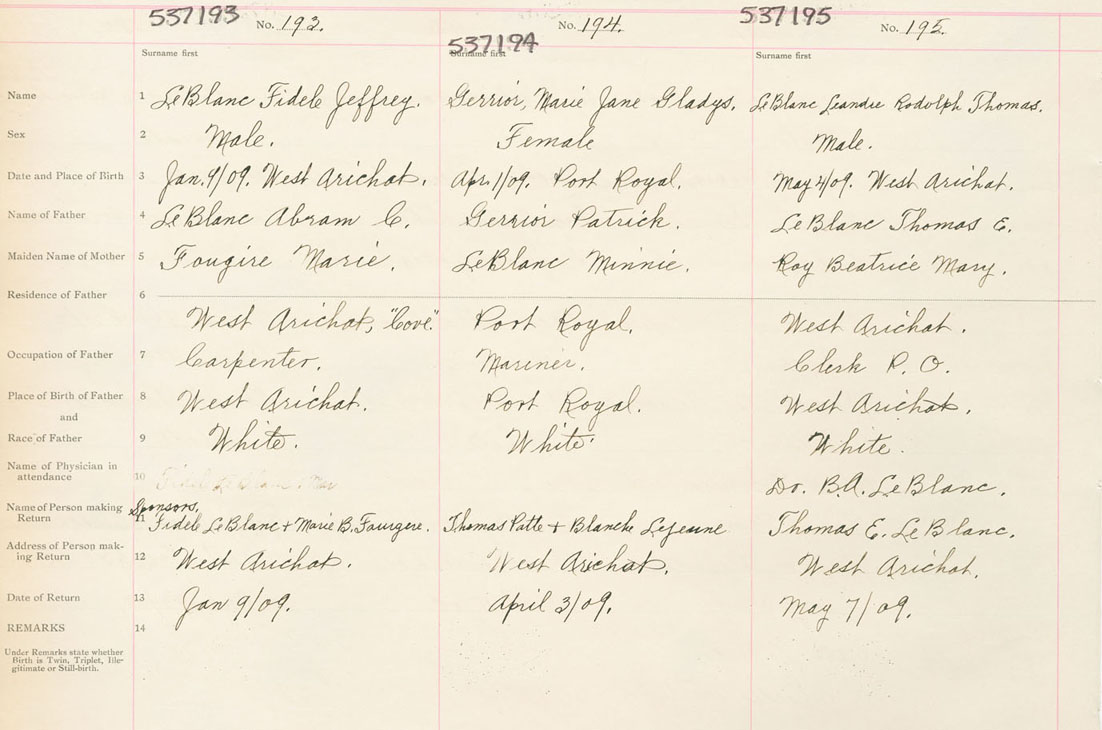 537193 No. 193. 537194 No. 194. 537195 No. 195.
Surname first Surname first Surname first
Name 1 LeBlanc Fidele Jeffrey. Gerrior, Marie Jane Gladys. LeBlanc Leandre Rodolph Thomas.
Sex 2 Male. Female Male.
Date and Place of Birth 3 Jan. 9/09. West Arichat. Apr. 1/09. Port Royal. May 4/09. West Arichat.
Name of Father 4 LeBlanc Abram C. Gerrior Patrick. LeBlanc Thomas E.
Maiden Name of Mother 5 Fougire Marie. LeBlanc Minnie. Roy Beatrice Mary.
Residence of Father 6
West Arichat, "Cove". Port Royal. West Arichat.
Occupation of Father 7 Carpenter. Mariner. Clerk P. O.
Place of Birth of Father 8 West Arichat. Port Royal. West Arichat.
and
Race of Father 9 White. White. White.
Name of Physician in
attendance 10 Dr. B.A. LeBlanc.
Name of Person making Sponsors.
Return 11 Fidele LeBlanc + Marie B. Fourgere. Thomas Patte + Blanche Lejeune Thomas E. LeBlanc.
Address of Person mak-
ing Return 12 West Arichat. West Arichat. West Arichat.
Date of Return 13 Jan 9/09. April 3/09. May 7/09.
REMARKS 14
Under Remarks state whether
Birth is Twin, Triplet, Ille-
gitimate or Still-birth.